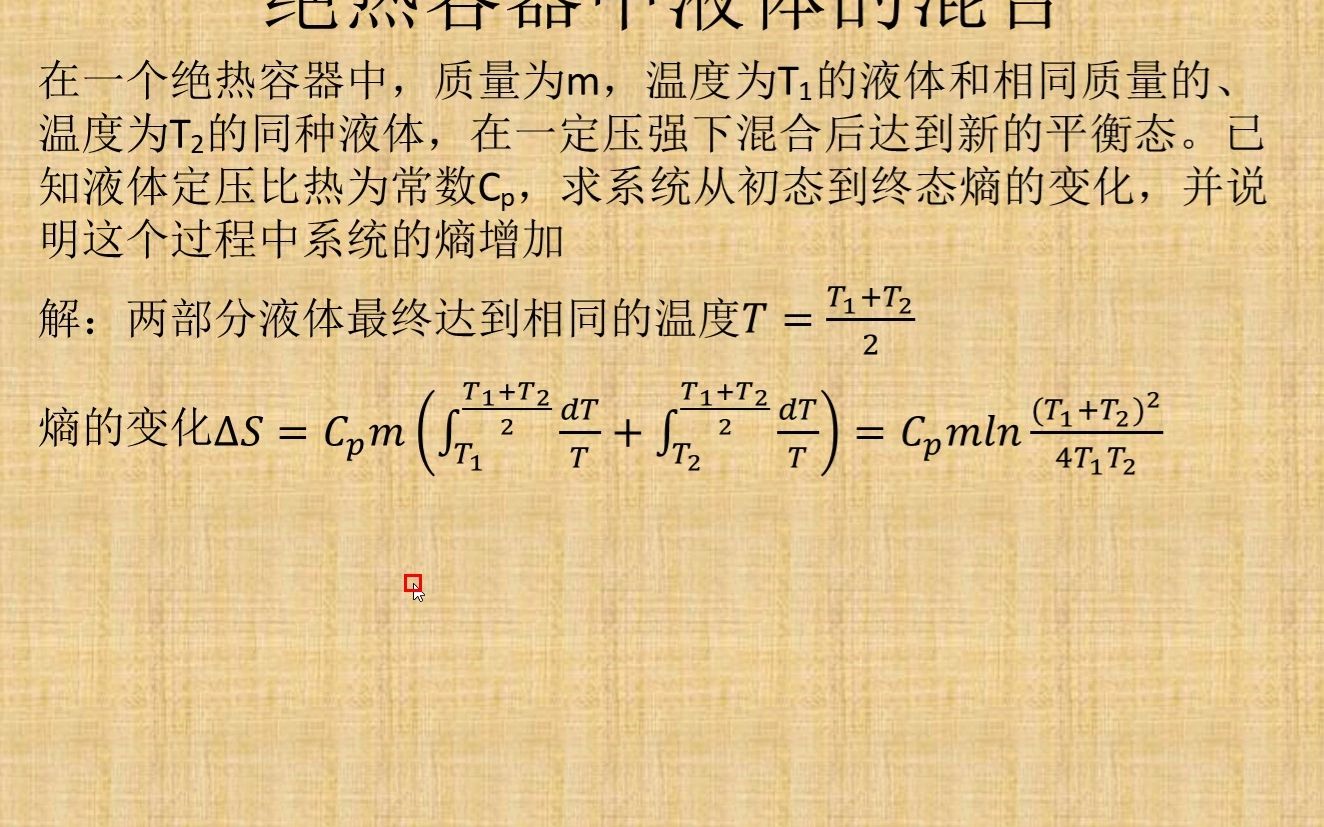 绝热容器中液体的混合
在一个绝热容器中，质量为m，温度为T₁的液体和相同质量的、
温度为T₂的同种液体，在一定压强下混合后达到新的平衡态。已
知液体定压比热为常数Cₚ，求系统从初态到终态熵的变化，并说
明这个过程中系统的熵增加
解：两部分液体最终达到相同的温度T = (T₁+T₂)/2
熵的变化ΔS = Cₚm (∫_{T₁}^{(T₁+T₂)/2} dT/T + ∫_{T₂}^{(T₁+T₂)/2} dT/T) = Cₚmln (T₁+T₂)²/4T₁T₂